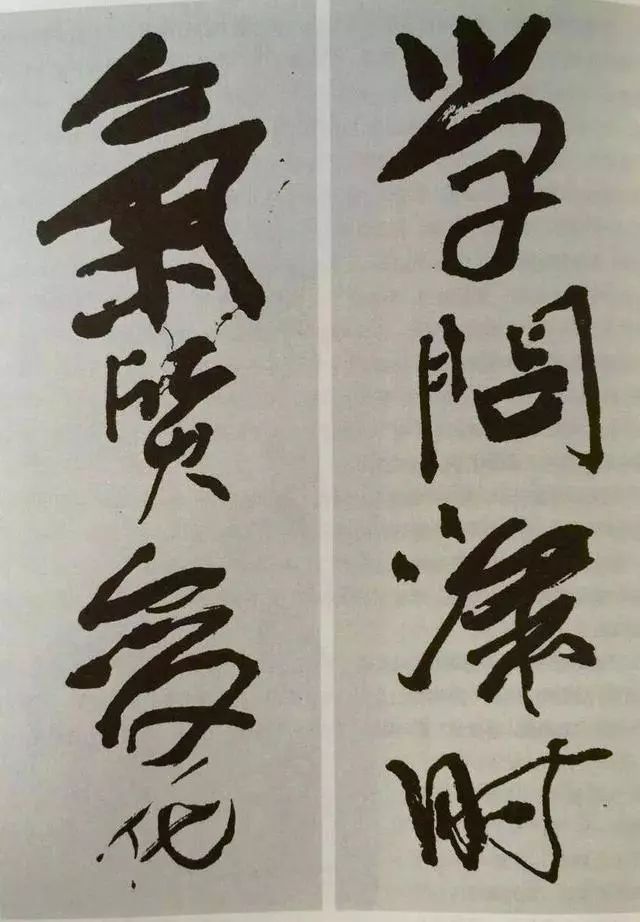 学問深时
氣質變化